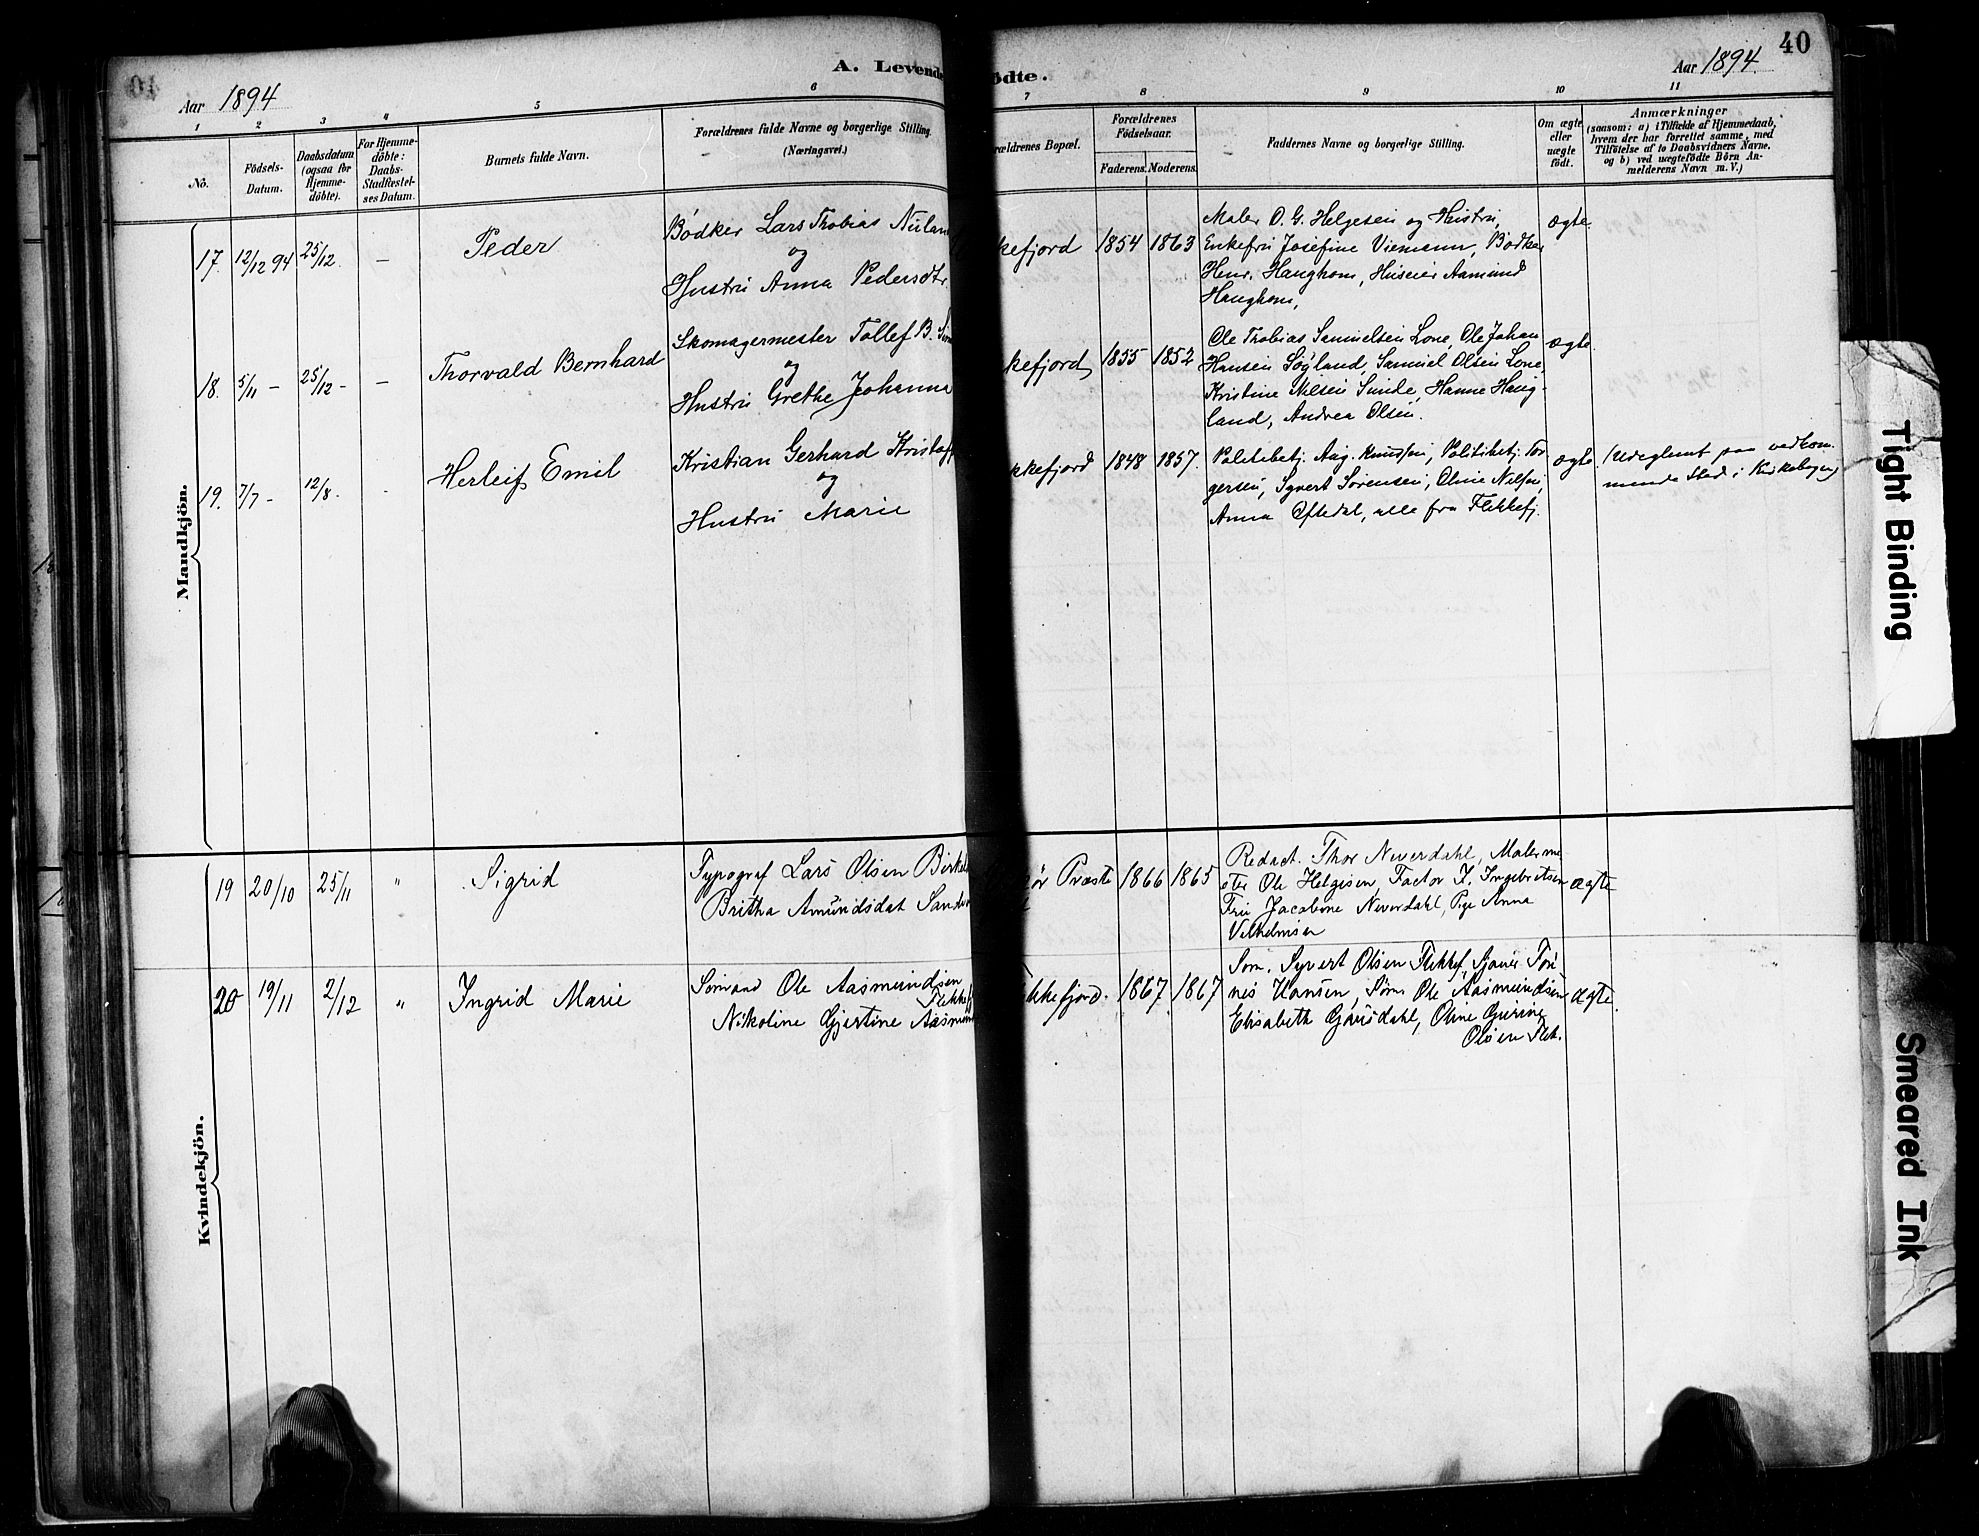 40
A. Levende
ödte.
Aar 1894
Aar 1894
1 2 3 4 5 6 7 8 9 10 11
No.
Födsels-
Datum.
Daabsdatum
(ogsaa for
Hjemme-
döbte).
For Hjemme-
döbte:
Daabs-
Stadfæstel-
ses Datum.
Barnets fulde Navn.
Forældrenes fulde Navne og borgerlige Stilling.
(Næringsvei.)
ældrenes Bopæl.
Forældrenes
Födselsaar.
Faderens. Moderens.
Faddernes Navne og borgerlige Stilling.
Om ægte
eller
uægte
födt.
Anmærkninger
(saasom: a) i Tilfælde af Hjemmedaab,
hvem der har forrettet samme, med
Tilföielse af to Daabsvidners Navne,
og b) ved uægtefödte Börn An-
melderens Navn m. V.)
Mandkjön.
17. 12/12 94 25/12. — Peder
Bödker Lars Thobias Nuland
og
Hustru Anna Pedersdtr.
kefjord 1854 1863
Maler O. G. Helgesen og Hustru,
Enkefru Josefine Viemann, Bödker
Henr. Haughom, Huseier Aamund
Haughom,
ægte.
18. 5/11 — 25/12 — — Thorvald Bernhard
Skomagermester Tollef B.
og
Hustru Grethe Johanna
kefjord 1855 1852
Ole Tobias Samuelsen Lone, Ole Johan
Hansen Söyland, Samuel Olsen Lone,
Kristine Nilsen Sunde, Hanne Haug-
land, Andrea Olsen.
ægte.
19. 7/7 — 12/8. - Herleif Emil
Kristian Gerhard Kristoff
og
Hustru Marie
kkefjord 1848 1857.
Politibetj. Aug. Knudsen, Politibetj. Tor
gersen, Syvert Sörensen, Oline Nilsen,
Anna Oftedal, alle fra Flekkefj.
ægte
Udeglemt paa vedkom-
mende Sted i Kirkebogen
Kvindekjön.
19 20/10 25/11 " Sigrid
Typograf Lars Olsen Birkel
Britha Amundsdat Sand
ör Præste 1866 1865
Redact. Thor Neverdahl, Malerme
ster Ole Helgesen, Factor I. Ingebretsen
Fru Jacobine Neverdahl, Pige Anna
Vilhelmsen
ægte
20 19/11 2/12 " Ingrid Marie
Sömand Ole Aasmundsen
Flekkef
Nikoline Gjertine Aasmun
kkefjord. 1867 1867
Söm. Syvert Olsen Flekkef, Tön
nes Hansen, Söm. Ole Aasmundsen
Elisabeth Gjausdahl, Oline
Olsen Flek.
ægte.
Tight Binding
Smeared Ink